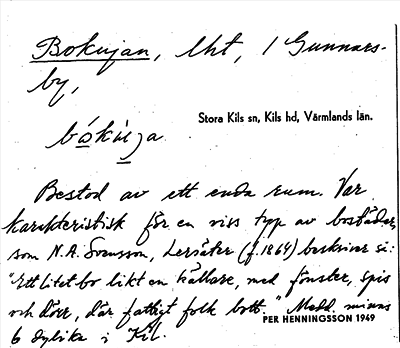 Bokujan, lht, i Gunnars-
by,
Stora Kils sn, Kils hd, Värmlands län.
bókùja
Bestod av ett enda rum. Var
karakteristisk för en viss typ av bostäder,
som N.A. Svensson, Lersäter (f. 1864) beskriver så:
"Ett litet bo likt en källare, med fönster, spis
och dörr, där fattigt folk bott." Medd. minns
PER HENNINGSSON 1949
6 dylika i Kil.